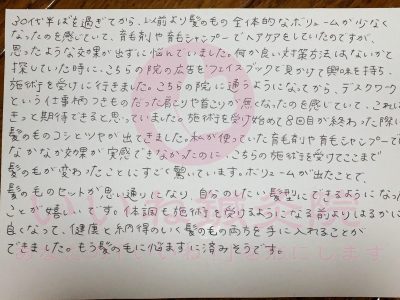 30代半ばを過ぎてから、以前より髪のもつ全体的なボリュームが少なく
なったのを感じていて、育毛剤や育毛シャンプーでヘアケアをしていたのですが、
思ったような効果が出ずに悩んでいました。何か良い対策方法はないかと
探していた時に、こちらの院の広告をフェイスブックで見かけて興味を持ち、
施術を受けに行きました。こちらの院に通うようになってから、デスクワーク
という仕事柄つきものだった肩こりや首こりが無くなったのを感じていて、これは
きっと期待できると思っていました。施術を受け始めて8回目が終わった際に
髪のもののコシとツヤが出てきました。私が使っていた育毛剤や育毛シャンプーでは
なかなか効果が実感できなかったのに、こちらの施術を受けてここまで
髪のもが変わったことにすごく驚いています。ボリュームが出たことで、
髪のものセットが思い通りになり、自分のしたい髪型にできるようになった
ことが嬉しいです。体調も施術を受けるようになる前よりはるかに
良くなって、健康と納得のいく髪のもの両方を手に入れることが
できました。もう髪のもに悩まずに済みそうです。